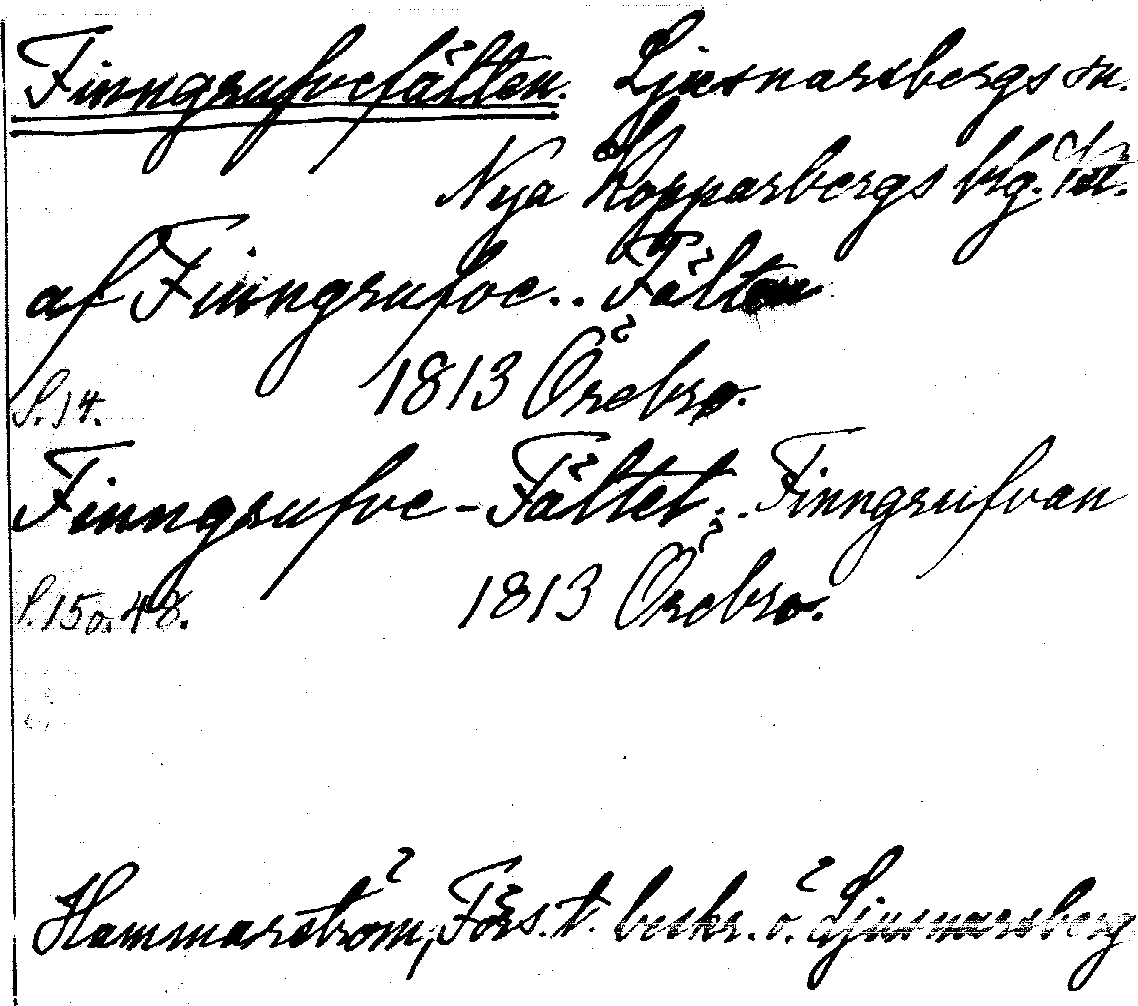 Finngrufvefälten. Ljusnarsbergs sn.
Nya Kopparbergs blg.
af Finngrufve.. Fälten
S. 14. 1813 Örebro.
Finngrufve-Fältet.. Finngrufvan
S. 15 o. 48. 1813 Örebro.
Hammarström, Förs. t. beskr. ö. Ljusnarsberg